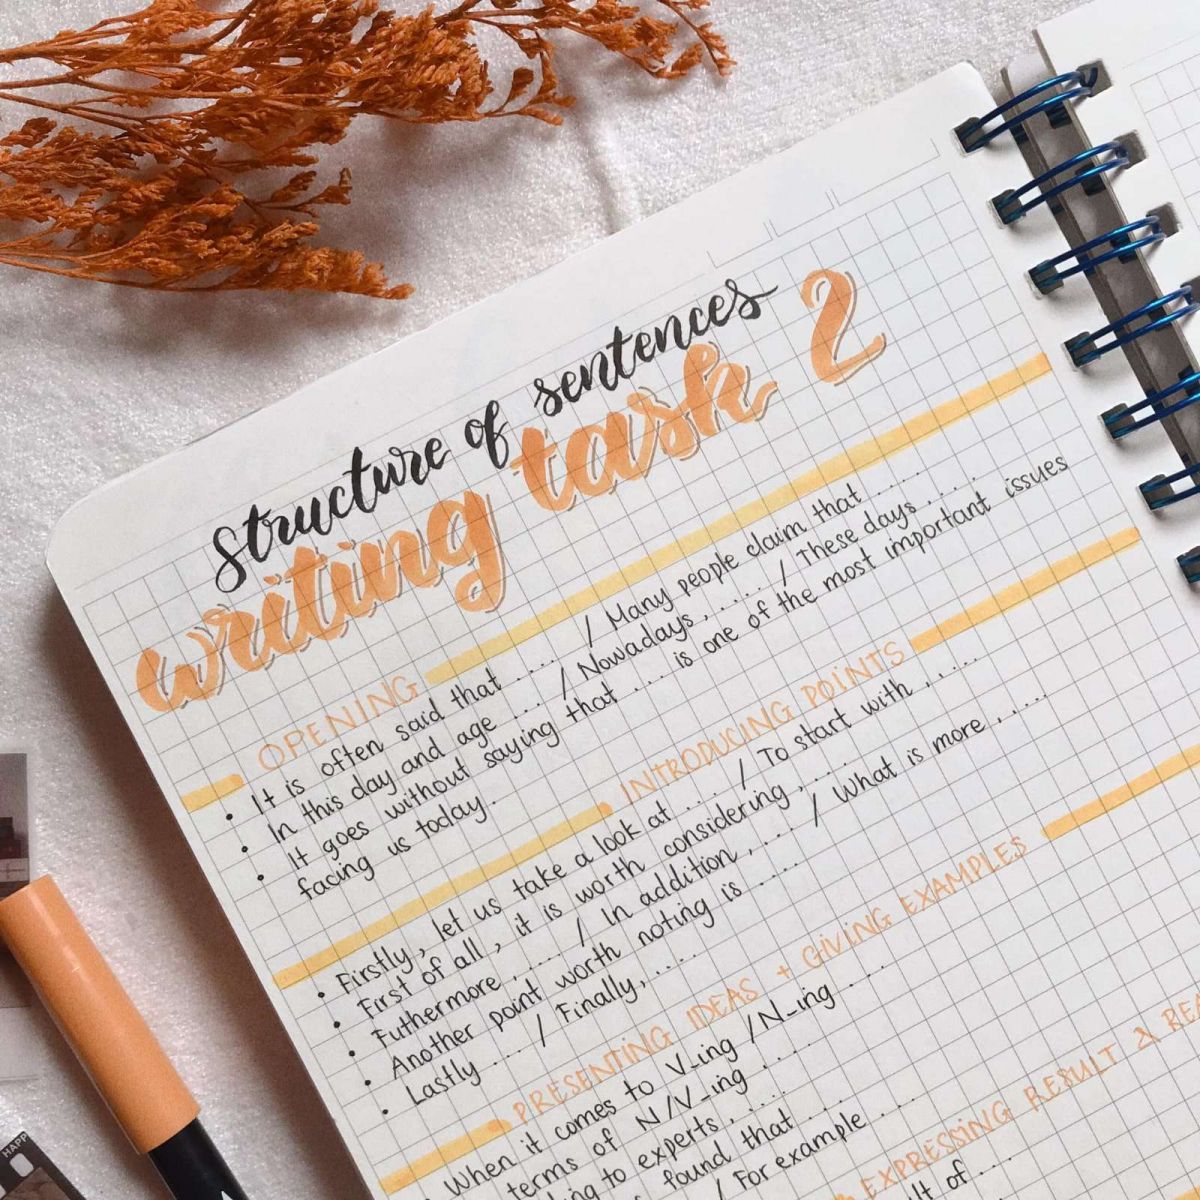 structure of sentences
writing task 2
OPENING
• It is often said that .... / Many people claim that ....
• In this day and age ... / Nowadays, .... / These days ....
• It goes without saying that .... is one of the most important issues
facing us today.
INTRODUCING POINTS
• Firstly, let us take a look at .... / To start with ....
• First of all, it is worth considering ....
• Futhermore, .... / In addition, .... / What is more, ....
• Another point worth noting is ....
• Lastly .... / Finally, ....
PRESENTING IDEAS + GIVING EXAMPLES
When it comes to V_ing / N_ing.
terms of N/V_ing.
to experts, ....
found that ....
/ For example ....
EXPRESSING RESULT &
of ....
HAPP